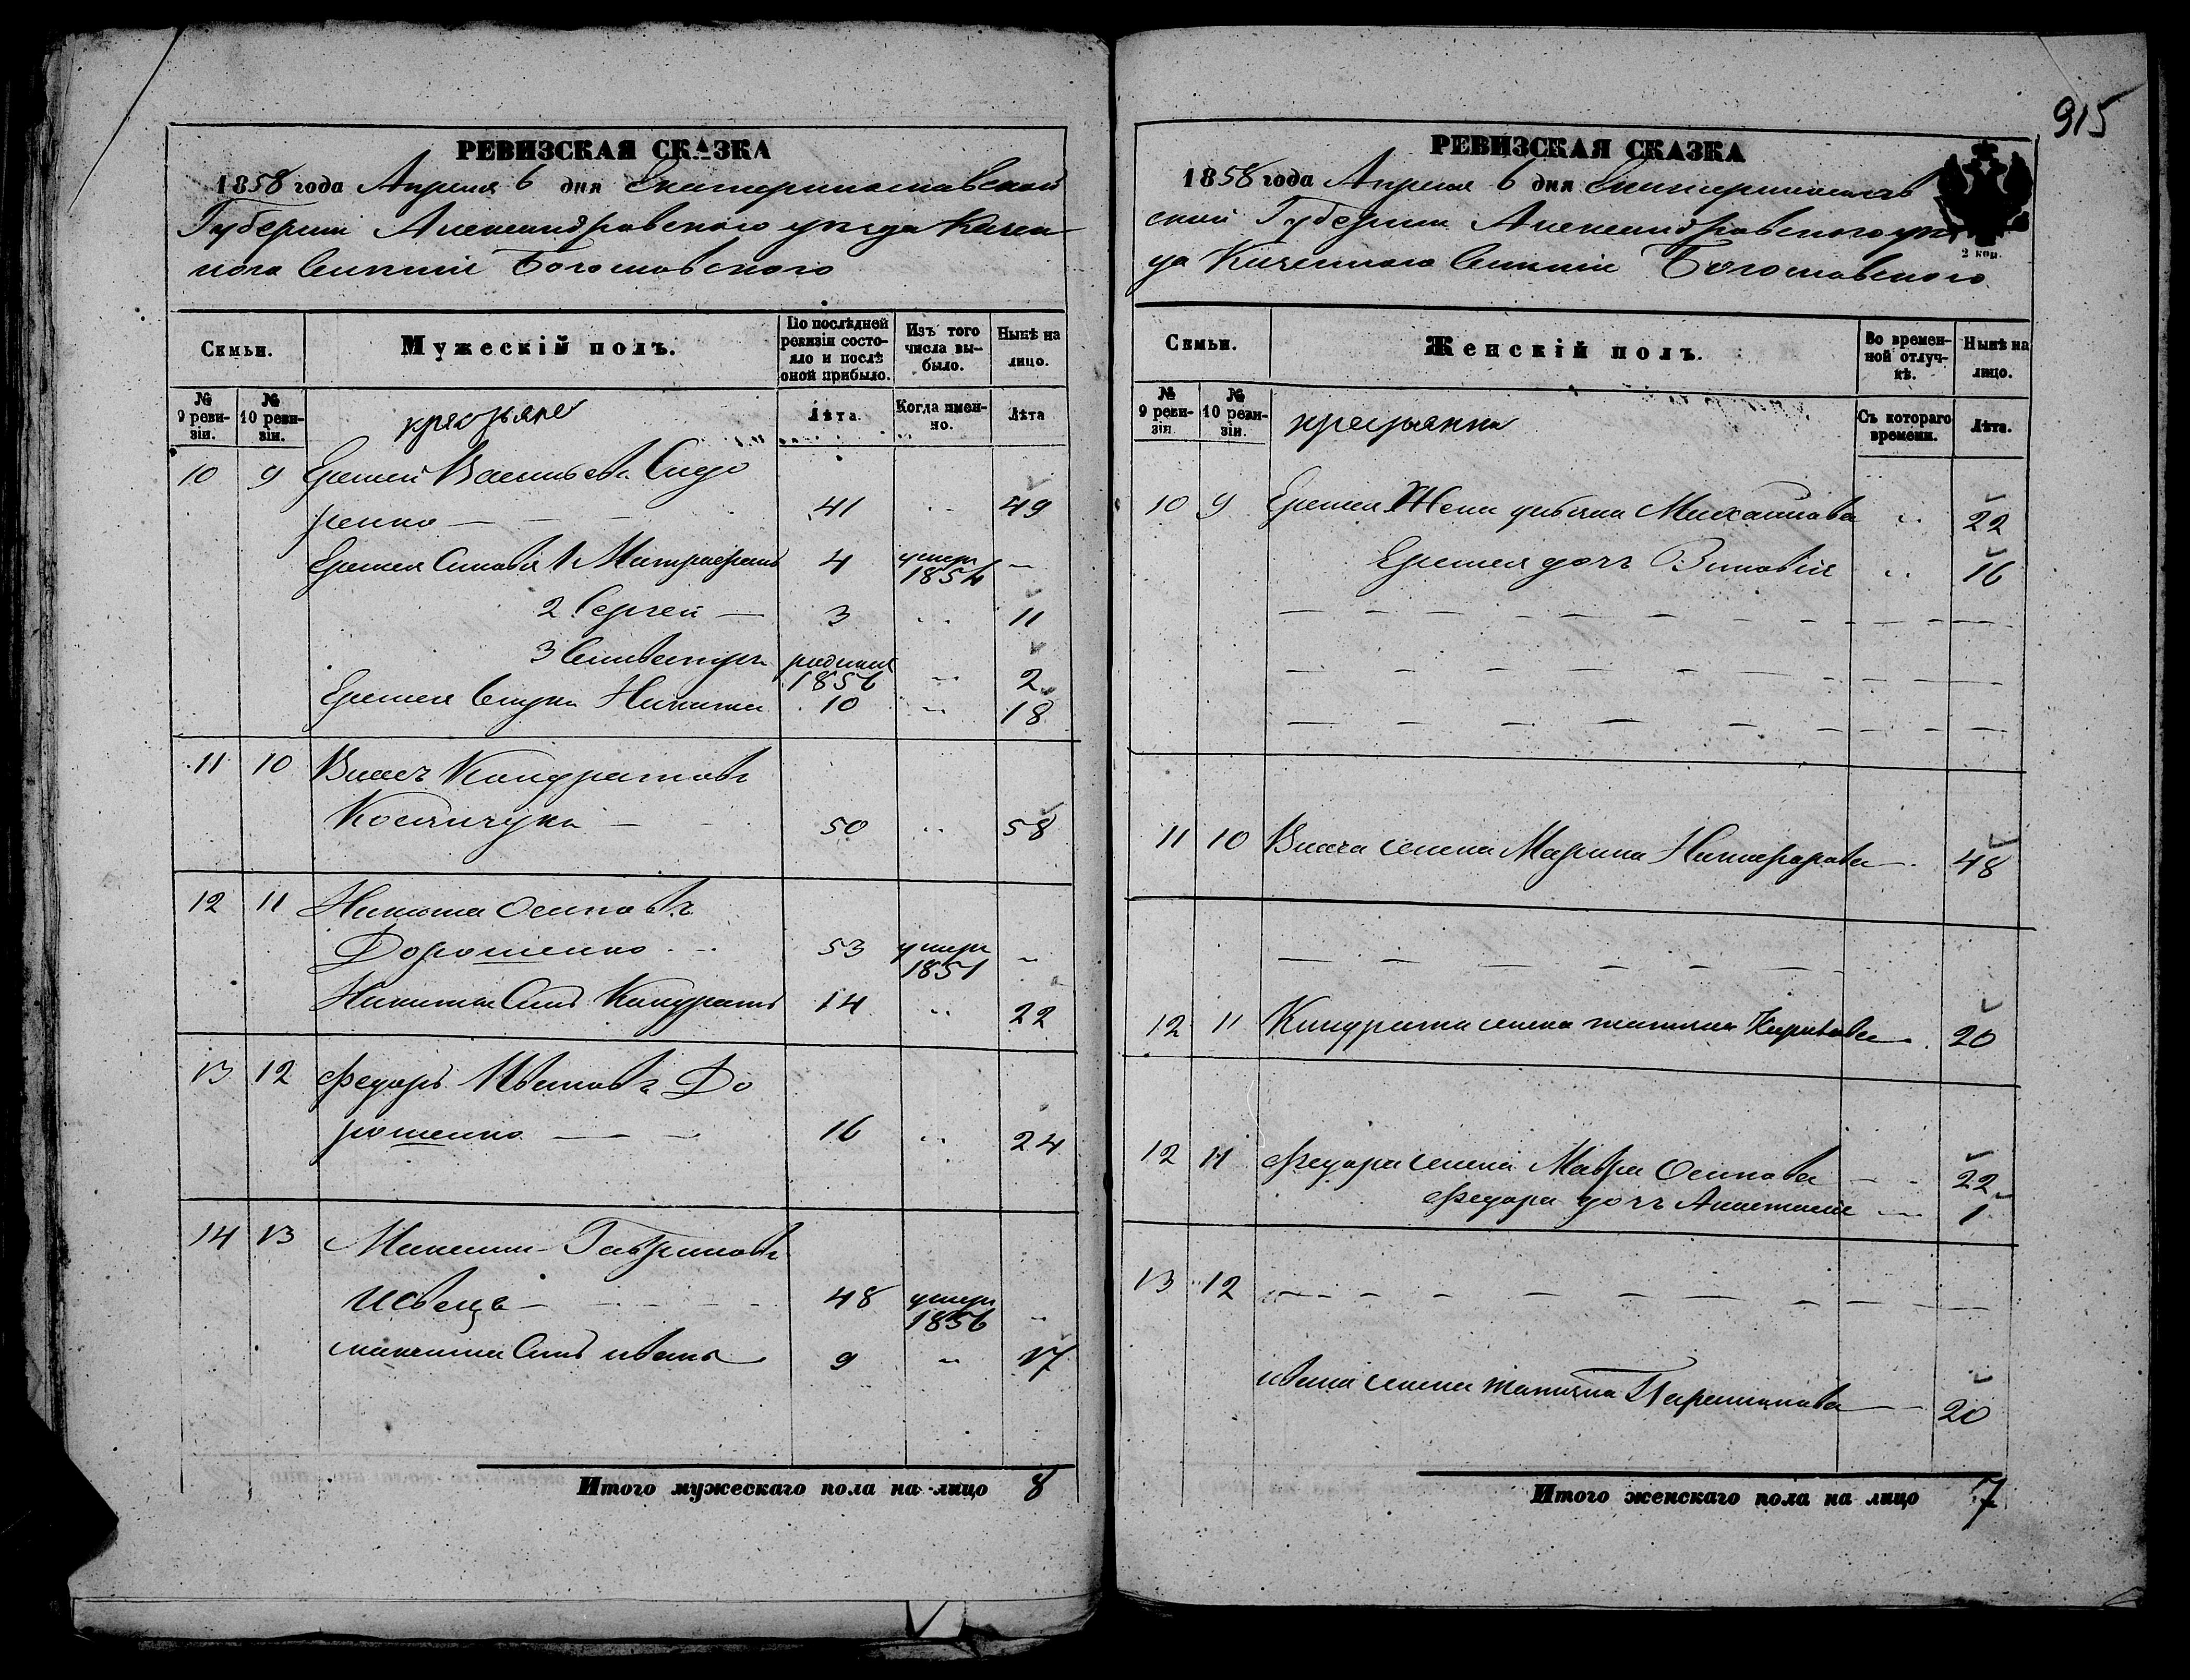 РЕВИЗСКАЯ СКАЗКА
1858 года Апреля 6 дня Екатеринославской
Губерніи Александровского уѣзда Казен
ного Селенія Богословского
Семьи.
Мужескій полъ.
По послѣдней ревизіи состояло и послѣ оной прибыло.
Изъ того числа выбыло.
Нынѣ на лицо.
№ 9 ревизіи.
№ 10 ревизіи.
крестьяне
Лѣта.
Когда именно.
Лѣта
10 9 Еремей Васильевъ Сидо
ренко — 41 49
Еремея Сыновья 1 Митрофанъ 4 умеръ 1854 —
2 Сергей — 3 11
3 Селивестръ родился 1856 2
Еремея внукъ Никита 10 18
11 10 Власъ Кондратовъ
50 58
12 11 Никита Осиповъ
Дорошенко 53 умеръ 1851
Никиты Сынъ Кондратъ 14 22
13 12 Федоръ Ивановъ До
рошенко — 16 24
14 13 Максимъ Гавриловъ
Швець — 48 умеръ 1856
максима Сынъ иванъ 9 17
Итого мужескаго пола на лицо 8
915
РЕВИЗСКАЯ СКАЗКА
1858 года Апреля 6 дня Екатеринослав
ской Губерніи Александровского уѣз
да Казенного Селенія Богословского
2 коп.
Семьи.
Женскій полъ.
Во временной отлучкѣ.
Нынѣ на лицо.
№ 9 ревизіи.
№ 10 ревизіи.
крестьянки
Съ котораго времени.
Лѣта.
10 9 Еремея Жена Михайлова 22
Еремея дочь Зиновія 16
11 10 Власа жена Марина Никифорова 48
12 11 Кондрата жена татьяна 20
12 11 Федора жена Мавра Осипова 22
Федора дочь Анастасія 1
13 12
ивана жена татьяна 20
Итого женскаго пола на лицо 7